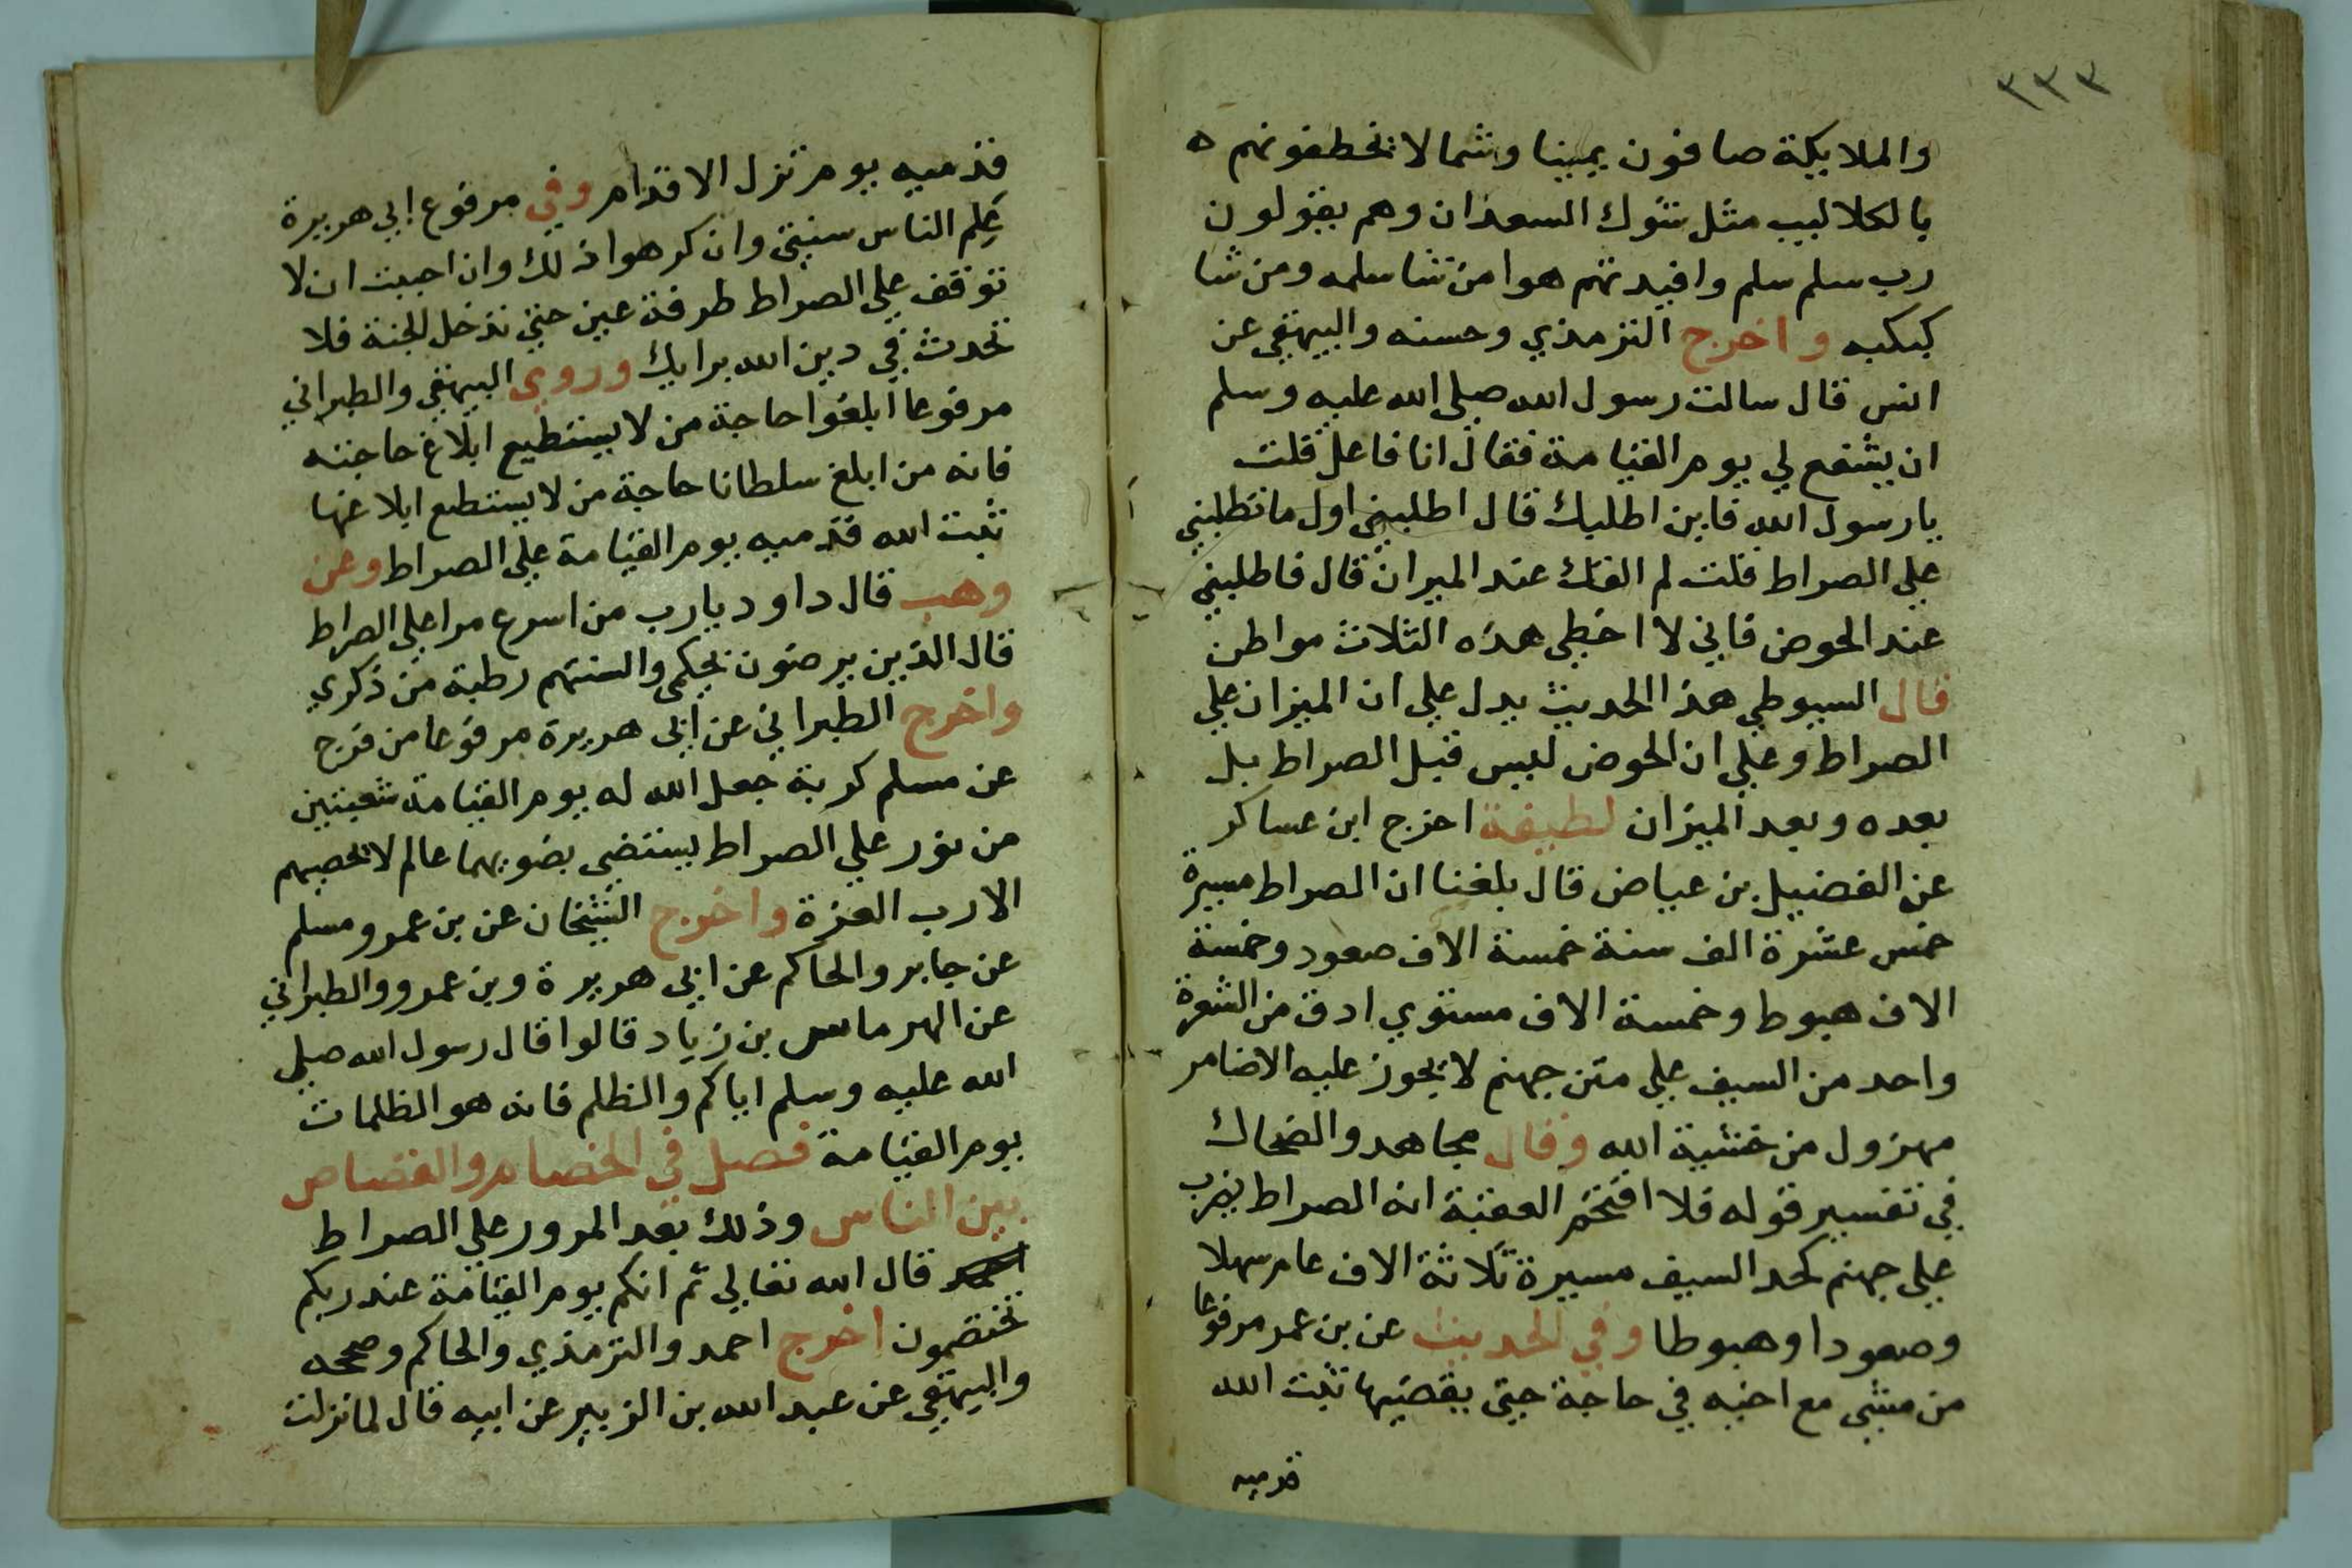 ٣٣٣
والملايكة صافون يمينا وشمالا تخطفونهم ه
بالكلاليب مثل شوك السعدان وهم يقولون
رب سلم سلم وافيدتهم هوا من شا سلمه ومن شا
كبكبه واخرج الترمذي وحسنه والبيهقي عن
انس قال سالت رسول الله صلي الله عليه وسلم
ان يشفع لي يوم القيامة فقال انا فاعل قلت
يا رسول الله فاين اطلبك قال اطلبني اول ما تطلبني
علي الصراط قلت لم القاك عند الميزان قال فاطلبني
عند الحوض فاني لا اخطي هذه الثلاث مواطن
قال السيوطي هذا الحديث يدل علي ان الميزان علي
الصراط وعلي ان الحوض ليس قبل الصراط بل
بعده وبعد الميزان لطيفة اخرج ابن عساكر
عن الفضيل بن عياض قال بلغنا ان الصراط مسيرة
خمس عشرة الف سنة خمسة الاف صعود وخمسة
الاف هبوط وخمسة الاف مستوي ادق من الشعرة
واحد من السيف علي متن جهنم لا يجوز عليه الا ضامر
مهزول من خشية الله وقال مجاهد والضحاك
في تفسير قوله فلا اقتحم العقبة انه الصراط يضرب
علي جهنم كحد السيف مسيرة ثلاثة الاف عام سهلا
وصعودا وهبوطا وفي الحديث عن بن عمر مرفوعا
من مشي مع اخيه في حاجة حتي يقضيها ثبت الله
قدميه
قدميه يوم تزل الاقدام وفي مرفوع ابي هريرة
علم الناس سنتي وان كرهوا ذلك وان احببت ان لا
توقف علي الصراط طرفة عين حتي تدخل الجنة فلا
تحدث في دين الله برايك وروي البيهقي والطبراني
مرفوعا ابلغوا حاجة من لا يستطيع ابلاغ حاجته
فانه من ابلغ سلطانا حاجة من لا يستطع ابلاغها
ثبت الله قدميه يوم القيامة علي الصراط وعن
وهب قال داود يا رب من اسرع مرا علي الصراط
قال الذين يرضون بحكمي والسنتهم رطبة من ذكري
واخرج الطبراني عن ابي هريرة مرفوعا من فرج
عن مسلم كربة جعل الله له يوم القيامة شعبتين
من نور علي الصراط يستضي بضويهما عالم لا يحصيهم
الا رب العزة واخرج الشيخان عن بن عمر ومسلم
عن جابر والحاكم عن ابي هريرة وبن عمرو والطبراني
عن الهرماس بن زياد قالوا قال رسول الله صلي
الله عليه وسلم اياكم والظلم فانه هو الظلمات
يوم القيامة فصل في الخصام والقصاص
بين الناس وذلك بعد المرور علي الصراط
قال الله تعالي ثم انكم يوم القيامة عند ربكم
تختصمون اخرج احمد والترمذي والحاكم وصححه
والبيهقي عن عبد الله بن الزبير عن ابيه قال لما نزلت